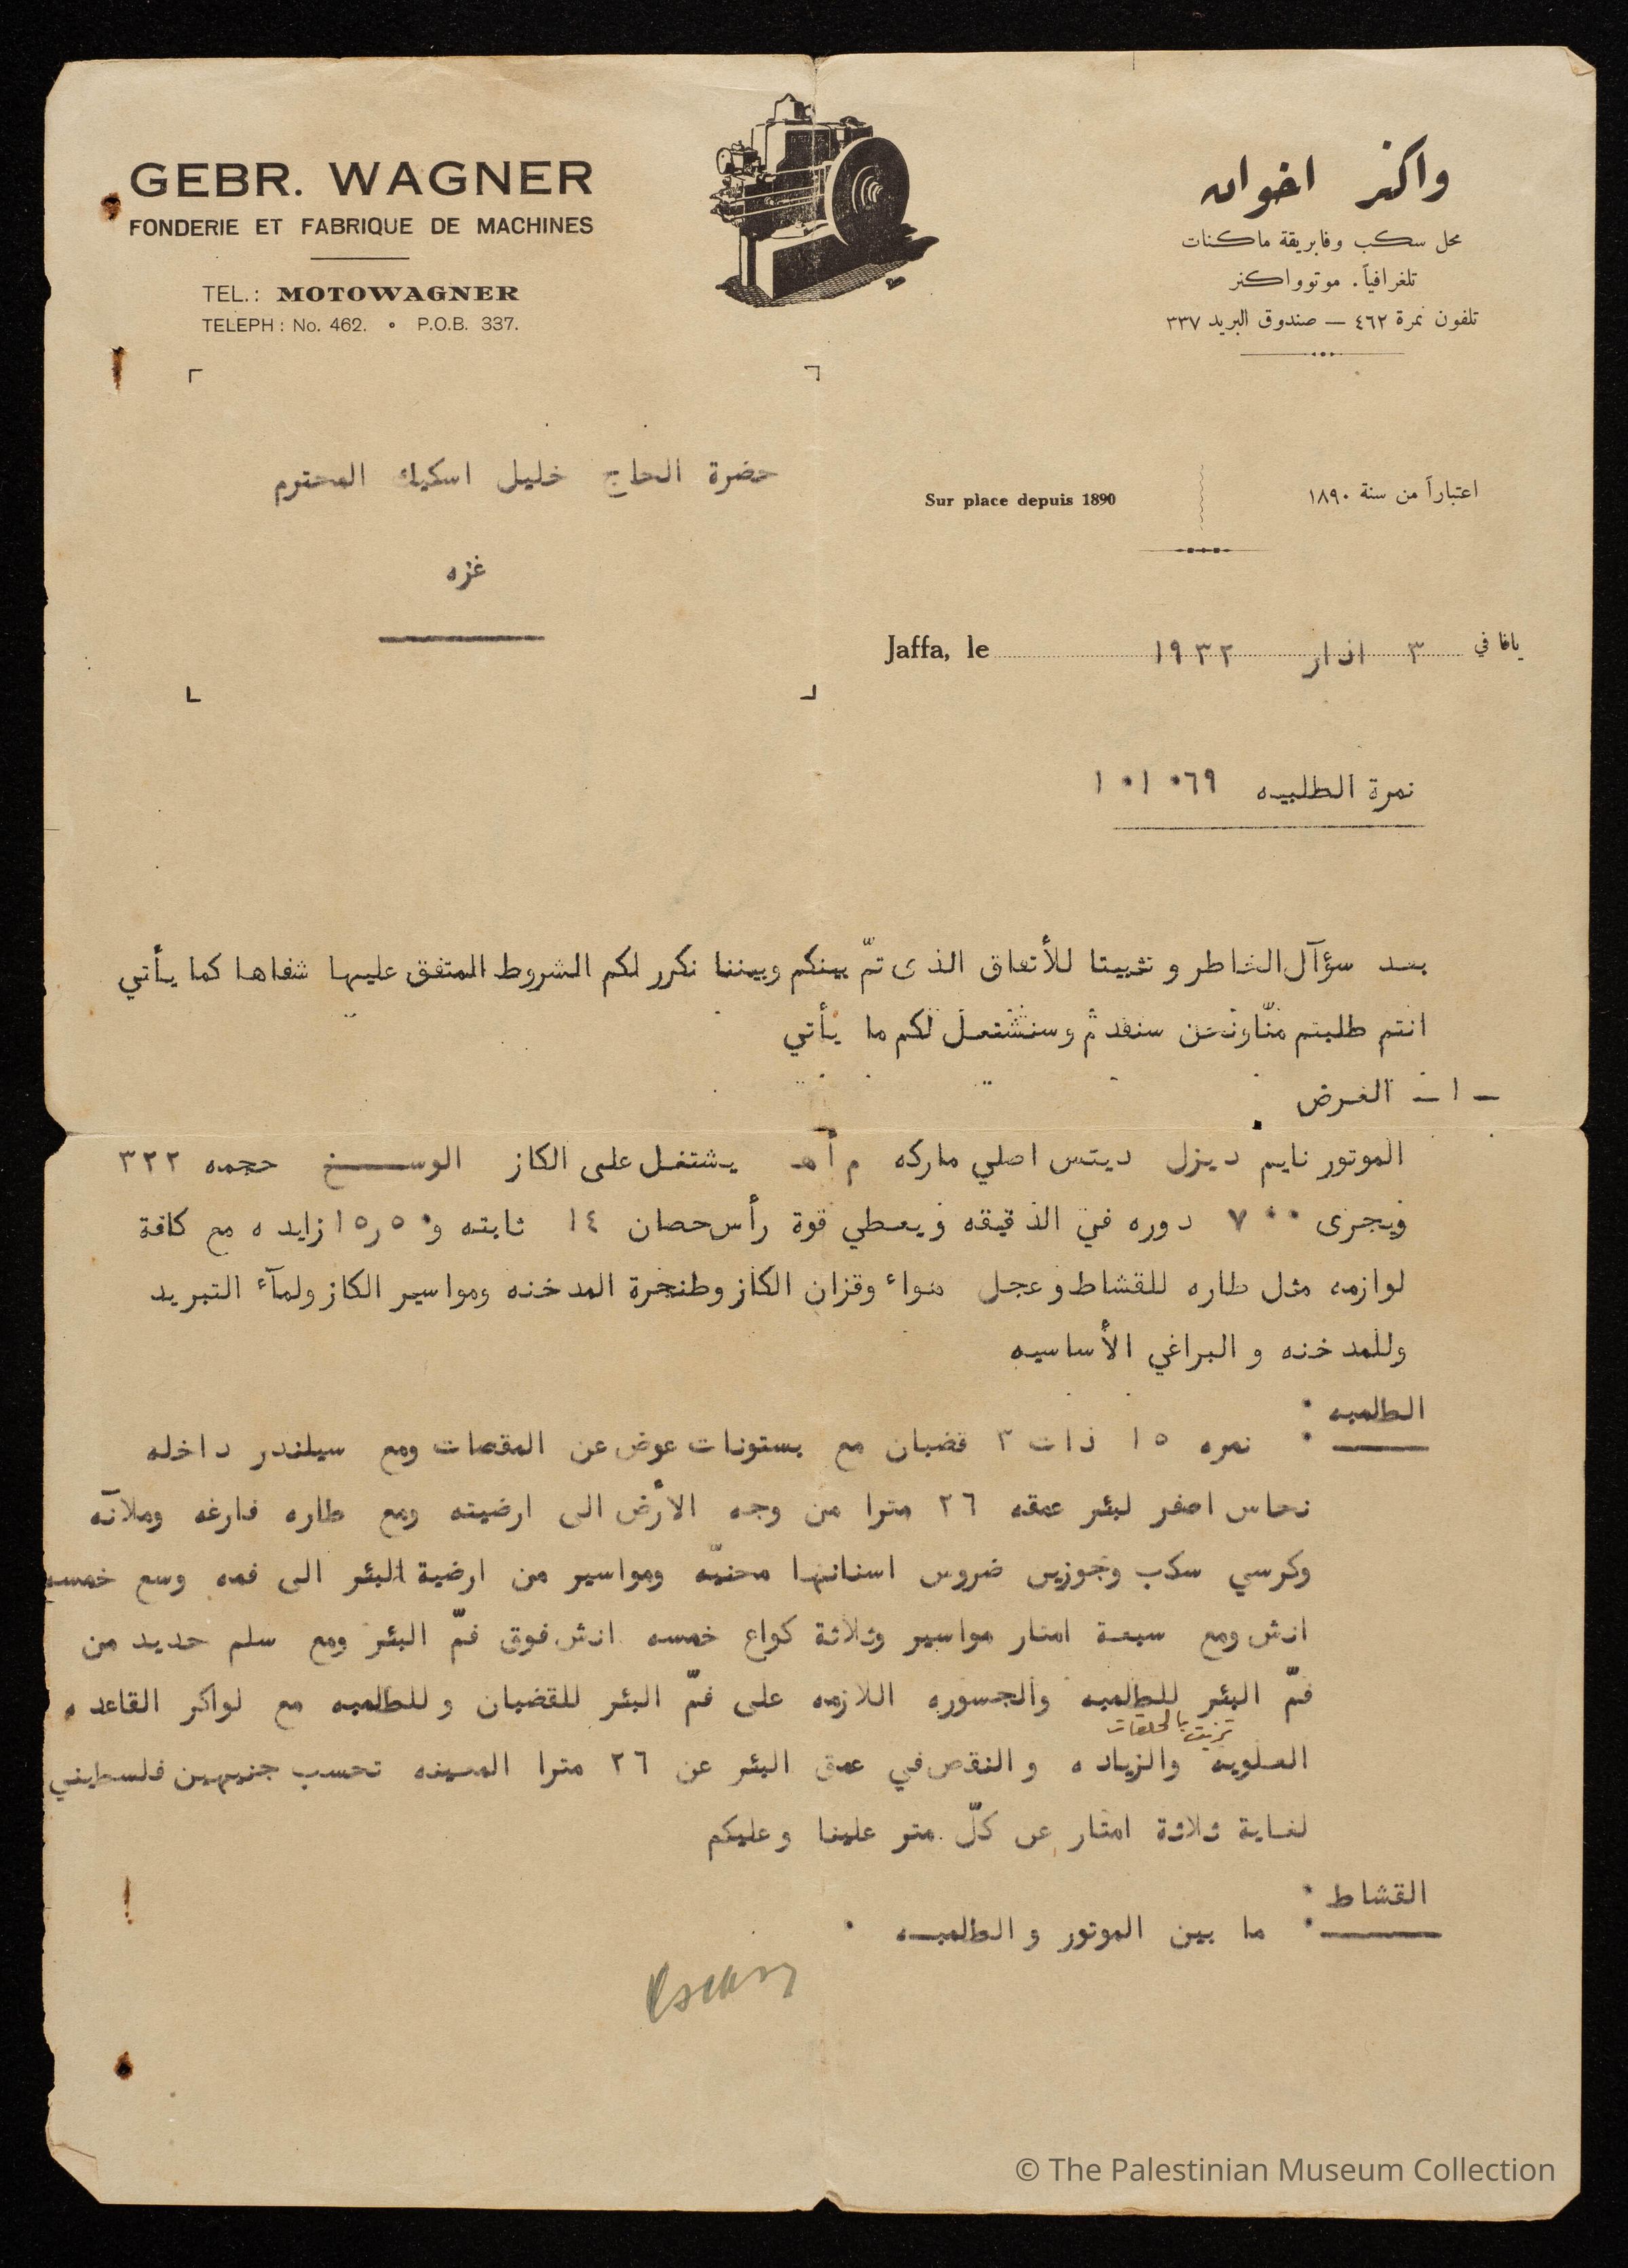 GEBR. WAGNER
FONDERIE ET FABRIQUE DE MACHINES
TEL.: MOTOWAGNER
TELEPH: No. 462. • P.O.B. 337.
واكنر اخوان
محل سكب وفابريقة ماكنات
تلغرافياً. موتوواكنر
تلفون نمرة ٤٦٢ — صندوق البريد ٣٣٧
حضرة الحاج خليل اسكيك المحترم
غزه
Sur place depuis 1890
اعتباراً من سنة ١٨٩٠
Jaffa, le
يافا في ٣ اذار ١٩٣٢
نمرة الطلبيه ١٠١٠٦٩
بعد سؤآل الخاطر و تثبيتا للأتفاق الذى تمّ بينكم وبيننا نكرر لكم الشروط المتفق عليها شفاها كما يأتي
انتم طلبتم منّا ونحن سنقدم وسنشتغل لكم ما يأتي
- ١ - الغرض
الموتور نايم ديزل ديتس اصلي ماركه م أ هـ يشتغل على الكاز الوسخ حجمه ٣٢٢
ويجرى ٧٠٠ دوره في الدقيقه ويعطي قوة رأس حصان ١٤ ثابته و ١٥ر٥٠ زايده مع كافة
لوازمه مثل طاره للقشاط وعجل هواء وقزان الكاز وطنجرة المدخنه ومواسير الكاز ولمآء التبريد
وللمدخنه و البراغي الأساسيه
الطلمبه :
نمره ١٥ ذات ٣ قضبان مع بستونات عوض عن المقصات ومع سيلندر داخله
نحاس اصفر لبئر عمقه ٢٦ مترا من وجه الأرض الى ارضيته ومع طاره فارغه وملآنه
وكرسي سكب وجوزين ضروس اسنانها محنيّه ومواسير من ارضية البئر الى فمه وسع خمسه
انش ومع سبعة امتار مواسير وثلاثة كواع خمسه انش فوق فمّ البئر ومع سلم حديد من
فمّ البئر للطلمبه والجسوره اللازمه على فمّ البئر للقضبان و للطلمبه مع لواكر القاعده
تزييت بالحلقات
العلويه والزياده و النقص في عمق البئر عن ٢٦ مترا المعينه تحسب جنيهين فلسطيني
لغاية ثلاثة امتار عن كلّ متر علينا و عليكم
القشاط :
ما بين الموتور و الطلمبه .
© The Palestinian Museum Collection